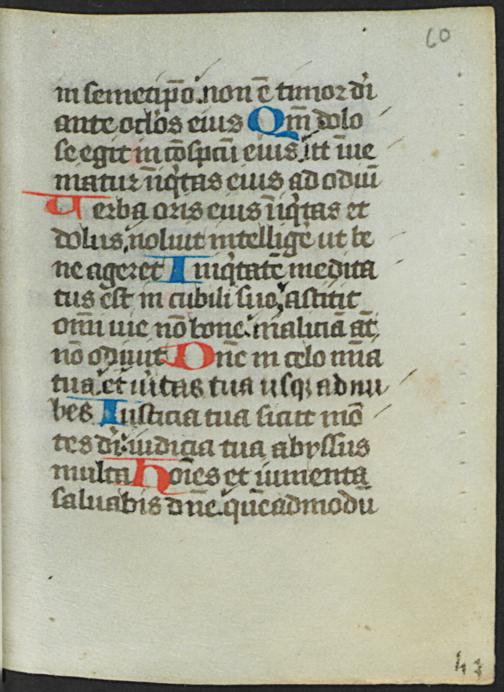 60
in semetip̄o. non ē timor di̅
ante oc̄los eius Qm̄ dolo
se egit in ꝯspc̄u eius. ut īue
matur īiq̄tas eius ad odiū
Verba oris eius īiq̄tas et
dolus, noluit intellige᷑ ut be
ne ageret Iniq̄tatē medita
tus est in cubili suo, astitit
om̄i uie nō bone. maliciā aū
nō odiuit Dn̄e in celo mīa
tua. et ūitas tua usq; ad nu
bes Iusticia tua sicut mō
tes dī: iudicia tua abyssus
multa Hoīes et iumenta
saluabis dn̄e. quēadmodū
43